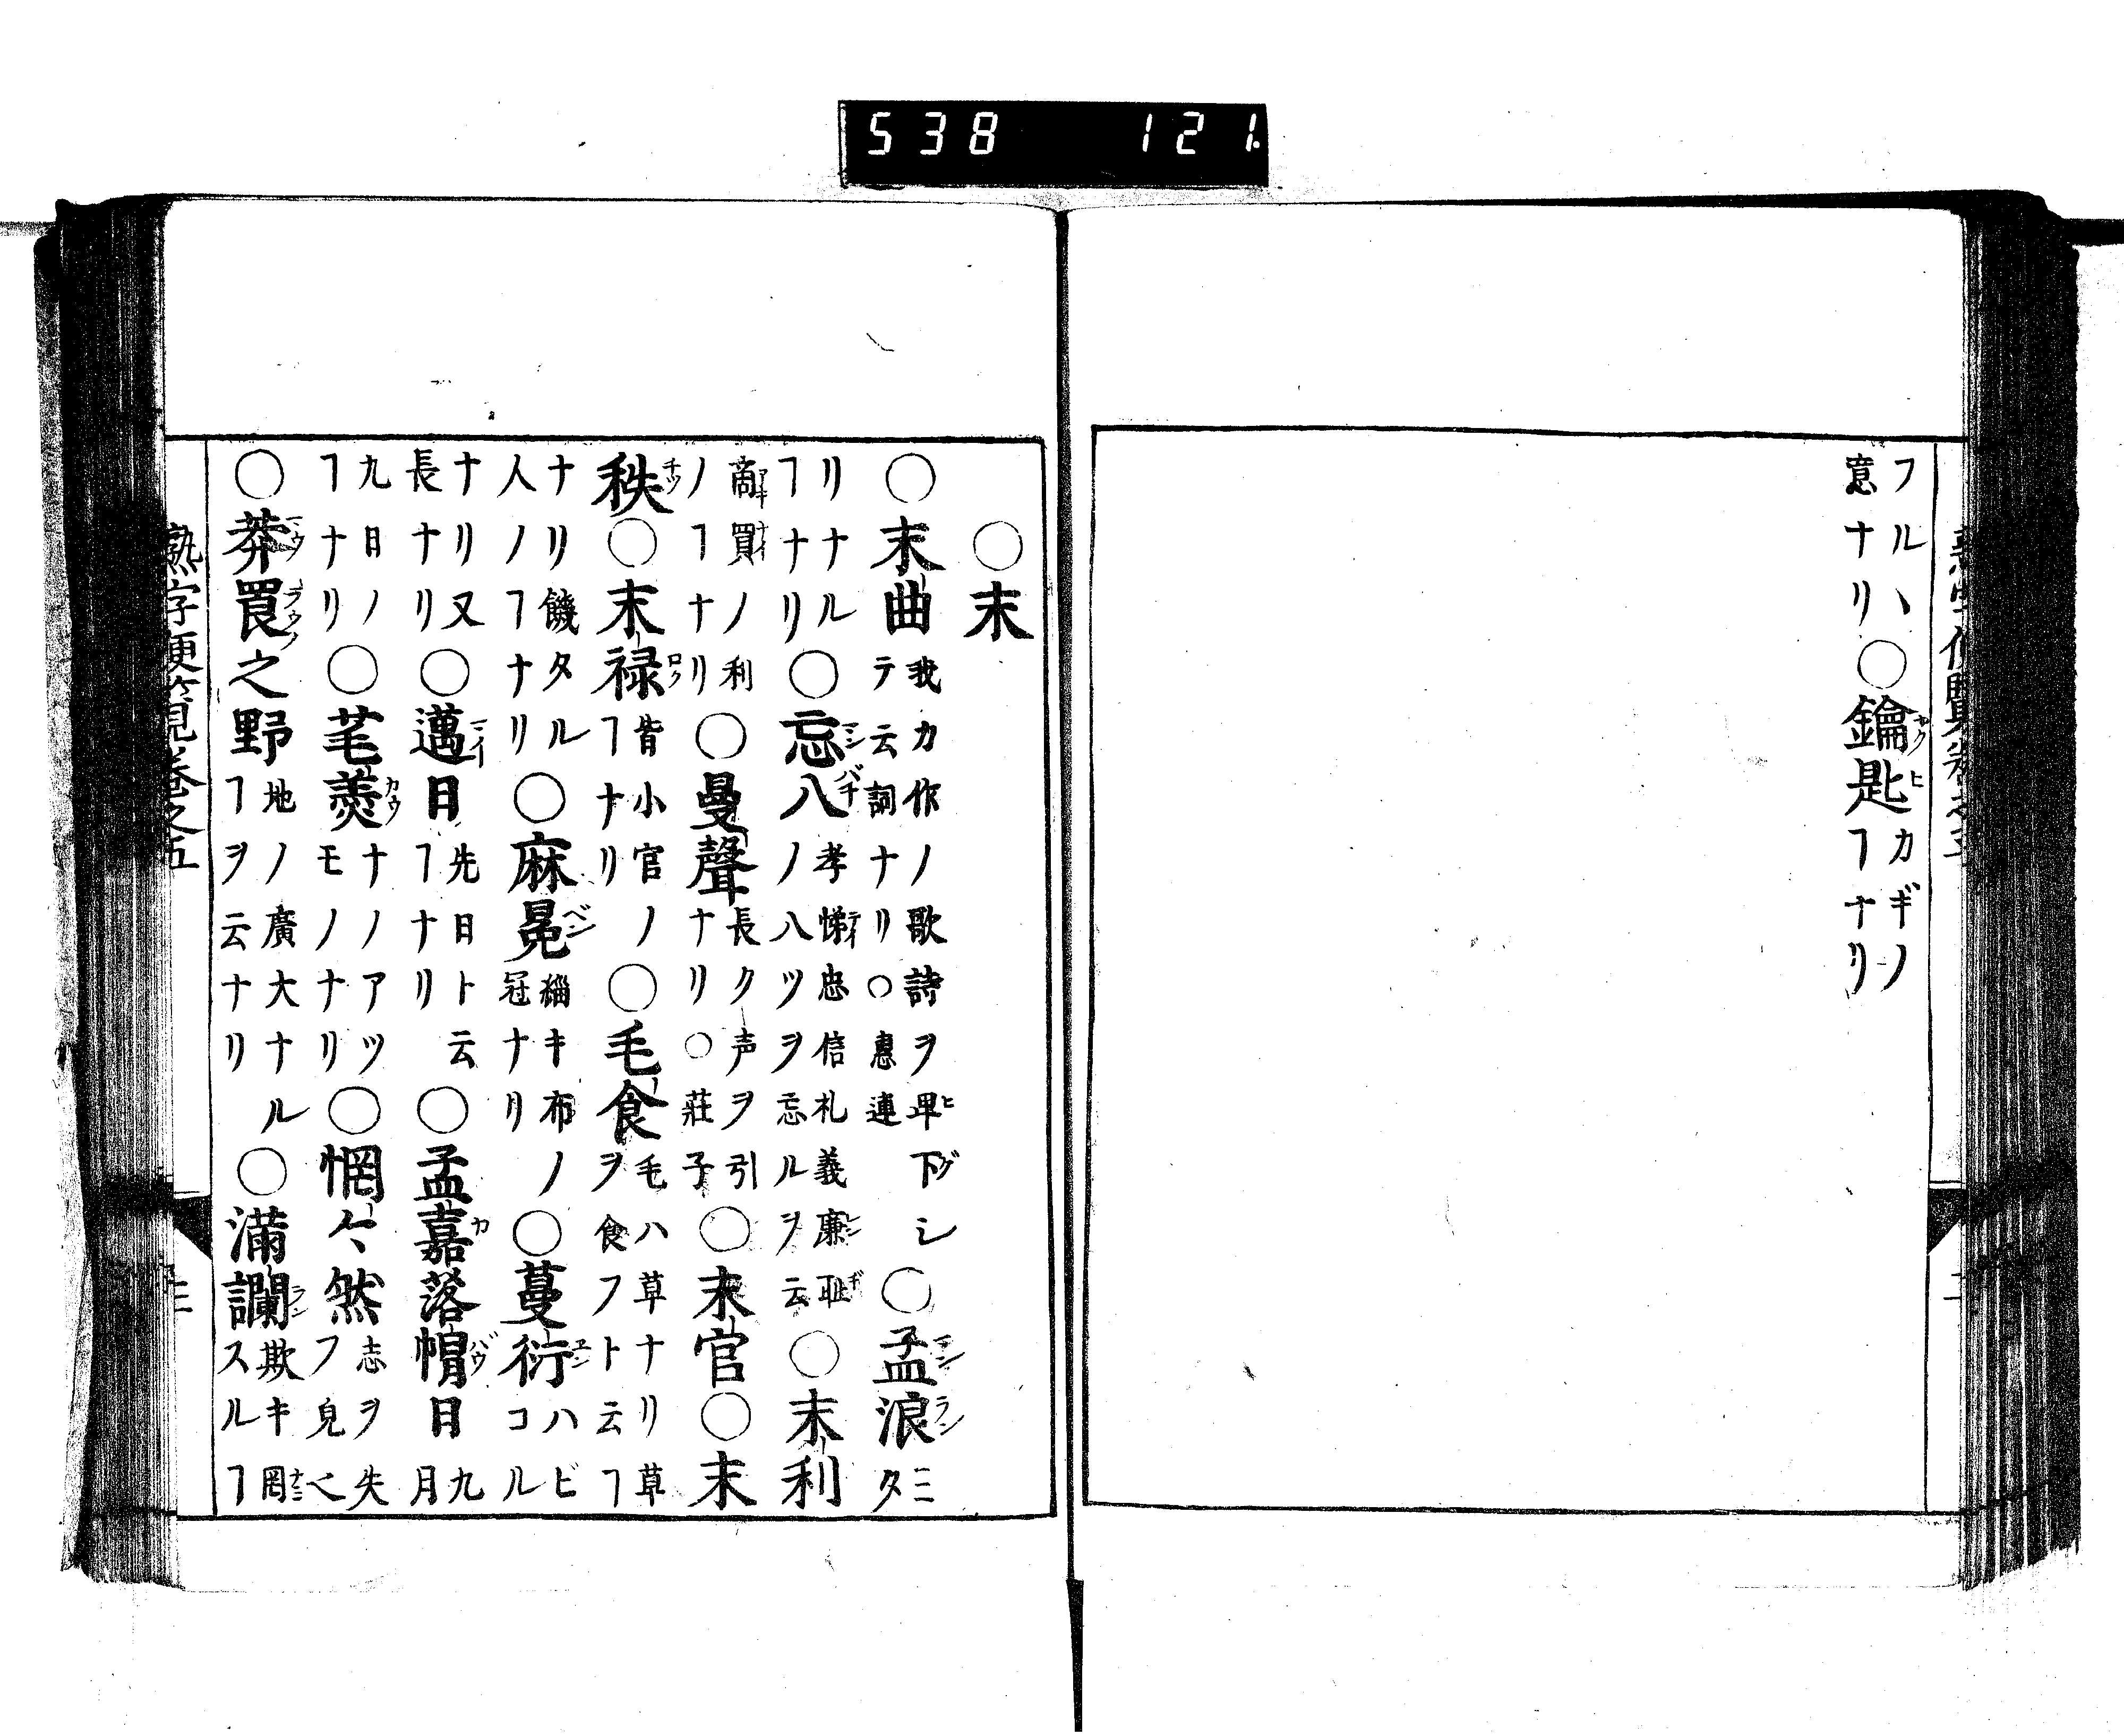 538 121
フルハヽカギノ
意ナリ○鑰匙ヿナリ
○末
○末曲我カ作ノ歌詩ヲ卑下シテ云詞ナリ○惠連○孟浪ミタ
リナルヿナリ○忘八孝悌忠信礼義廉耻ノ八ツヲ忘ルヲ云○末利
商買ノ利ノヿナリ○曼聲長ク声ヲ引ナリ○莊子○末官○末
秩○末禄皆小官ノヿナリ○毛食毛ハ草ナリ草ヲ食フト云ヿ
ナリ饑タル人ノヿナリ○麻冕緇キ布ノ冠ナリ○蔓衍ハビコル
ナリ又長ナリ○邁日先日ト云ヿナリ○孟嘉落帽日九月
九日ノヿナリ○芼羮ナノアツモノナリ○惘々然志ヲ失フ皃
○莽買之野地ノ廣大ナルヿヲ云ナリ○滿讕欺キ罔スルヿ
熟字便覧卷之五